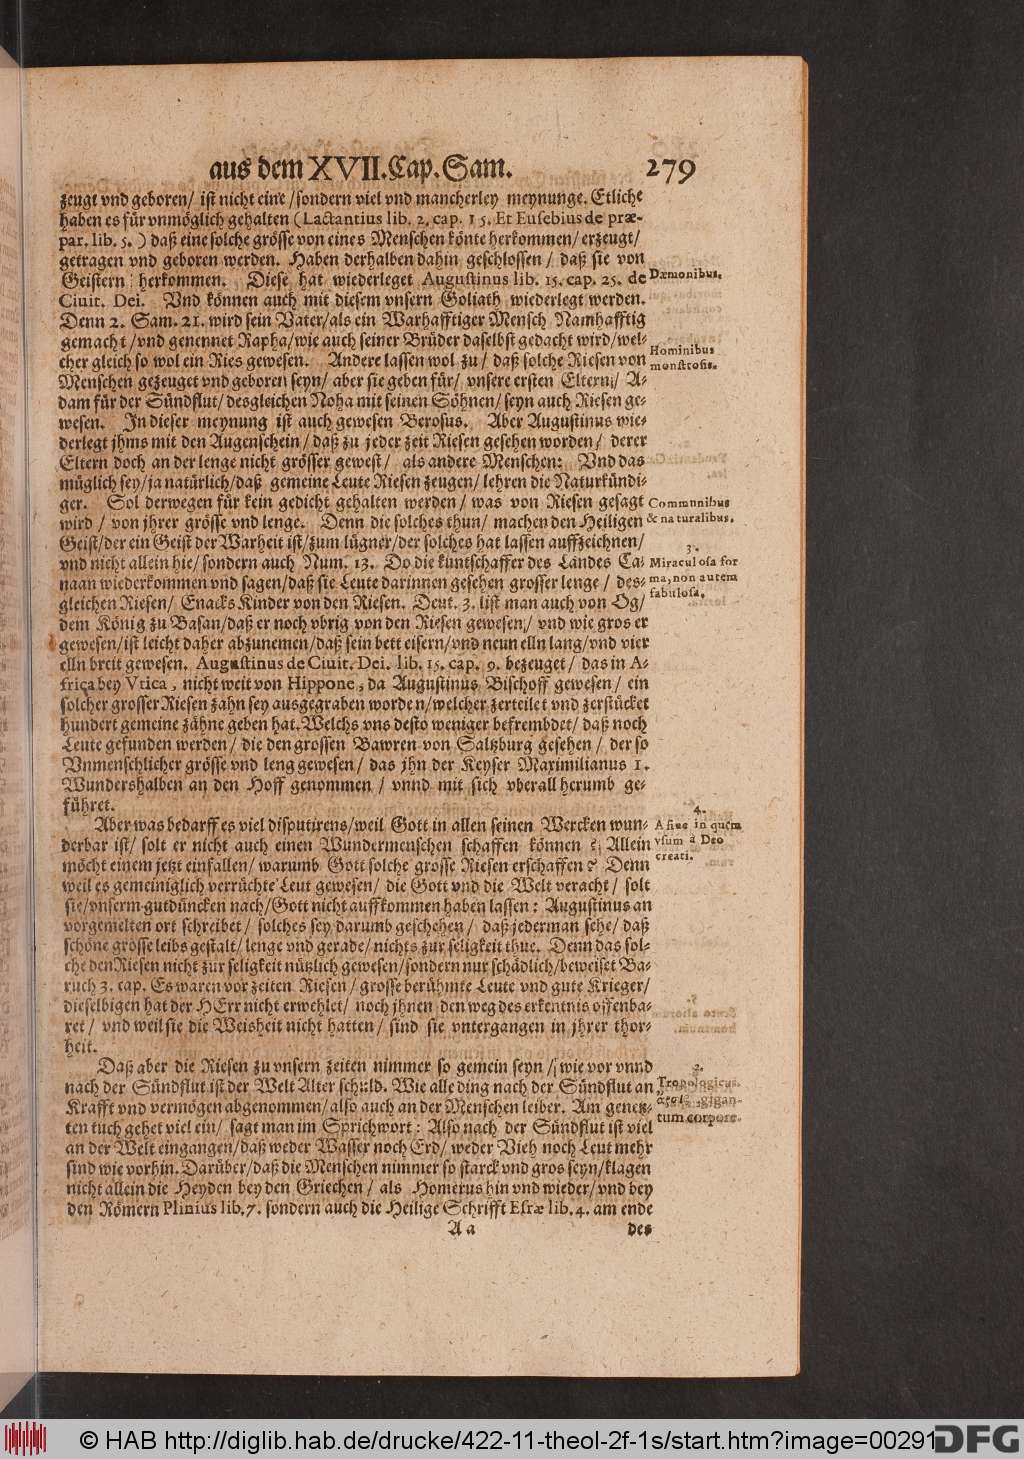 aus dem XVII. Cap. Sam. 279
zeugt vnd geboren/ ist nicht eine /sondern viel vnd mancherley meynunge. Etliche
haben es für vnmöglich gehalten (Lactantius lib. 2. cap. 15. Et Eusebius de præ-
par. lib. 5.) daß eine solche grösse von eines Menschen könte herkommen/ erzeugt/
getragen vnd geboren werden. Haben derhalben dahin geschlossen/ daß sie von
Geistern herkommen. Diese hat wiederleget Augustinus lib. 15. cap. 25. de
Dæmonibus.
Ciuit. Dei. Vnd können auch mit diesem vnsern Goliath wiederlegt werden.
Denn 2. Sam. 21. wird sein Vater/als ein Warhafftiger Mensch Namhafftig
gemacht/vnd genennet Rapha/wie auch seiner Brüder daselbst gedacht wird/wel-
cher gleich so wol ein Ries gewesen. Andere lassen wol zu/ daß solche Riesen von
Hominibus
monstrosis.
Menschen gezeuget vnd geboren seyn/ aber sie geben für/ vnsere ersten Eltern/ A-
dam für der Sündflut/desgleichen Noha mit seinen Söhnen/ seyn auch Riesen ge-
wesen. In dieser meynung ist auch gewesen Berosus. Aber Augustinus wie-
derlegt jhms mit den Augenschein/ daß zu jeder zeit Riesen gesehen worden/ derer
Eltern doch an der lenge nicht grösser gewest/ als andere Menschen: Vnd das
müglich sey/ja natürlich/daß gemeine Leute Riesen zeugen/ lehren die Naturkündi-
ger. Sol derwegen für kein gedicht gehalten werden/ was von Riesen gesagt
Communibus
& naturalibus.
wird/ von jhrer grösse vnd lenge. Denn die solches thun/ machen den Heiligen
Geist/der ein Geist der Warheit ist/zum lügner/der solches hat lassen auffzeichnen/
vnd nicht allein hie/ sondern auch Num. 13. Do die kuntschaffer des Landes Ca-
3.
Miraculosa for
ma, non autem
fabulosa.
naan wiederkommen vnd sagen/daß sie Leute darinnen gesehen grosser lenge/ des-
gleichen Riesen/ Enacks Kinder von den Riesen. Deut. 3. list man auch von Og/
dem König zu Basan/daß er noch vbrig von den Riesen gewesen/ vnd wie gros er
gewesen/ist leicht daher abzunemen/daß sein bett eisern/vnd neun elln lang/vnd vier
elln breit gewesen. Augustinus de Ciuit. Dei. lib. 15. cap. 9. bezeuget/ das in A-
frica bey Vtica, nicht weit von Hippone, da Augustinus Bischoff gewesen/ ein
solcher grosser Riesen zahn sey ausgegraben worden/welcher zerteilet vnd zerstücket
hundert gemeine zähne geben hat. Welchs vns desto weniger befrembdet/ daß noch
Leute gefunden werden/ die den grossen Bawren von Saltzburg gesehen/ der so
Vnmenschlicher grösse vnd leng gewesen/ das jhn der Keyser Maximilianus 1.
Wundershalben an den Hoff genommen/ vnnd mit sich vberall herumb ge-
führet.
Aber was bedarff es viel disputirens/weil Gott in allen seinen Wercken wun-
4.
A fine in quem
vsum à Deo
creati.
derbar ist/ solt er nicht auch einen Wundermenschen schaffen können? Allein
möcht einem jetzt einfallen/ warumb Gott solche grosse Riesen erschaffen? Denn
weil es gemeiniglich verrüchte Leut gewesen/ die Gott vnd die Welt veracht/ solt
sie/vnserm gutdüncken nach/Gott nicht auffkommen haben lassen: Augustinus an
vorgemelten ort schreibet/ solches sey darumb geschehen/ daß jederman sehe/ daß
schöne grösse leibs gestalt/ lenge vnd gerade/ nichts zur seligkeit thue. Denn das sol-
che den Riesen nicht zur seligkeit nützlich gewesen/sondern nur schädlich/beweiset Ba-
ruch 3. cap. Es waren vor zeiten Riesen/ grosse berühmte Leute vnd gute Krieger/
dieselbigen hat der HErr nicht erwehlet/ noch jhnen den weg des erkentnis offenba-
ret/ vnd weil sie die Weisheit nicht hatten/ sind sie vntergangen in jhrer thor-
heit.
Daß aber die Riesen zu vnsern zeiten nimmer so gemein seyn/ wie vor vnnd
2.
Tropologicus.
gigan-
tum corpore.
nach der Sündflut ist der Welt Alter schuld. Wie alle ding nach der Sündflut an
Krafft vnd vermögen abgenommen/also auch an der Menschen leiber. Am genetz-
ten tuch gehet viel ein/ sagt man im Sprichwort: Also nach der Sündflut ist viel
an der Welt eingangen/daß weder Wasser noch Erd/ weder Vieh noch Leut mehr
sind wie vorhin. Darüber/daß die Menschen nimmer so starck vnd gros seyn/klagen
nicht allein die Heyden bey den Griechen/ als Homerus hin vnd wieder/ vnd bey
den Römern Plinius lib. 7. sondern auch die Heilige Schrifft Esræ lib. 4. am ende
A a des
© HAB http://diglib.hab.de/drucke/422-11-theol-2f-1s/start.htm?image=00291
DFG